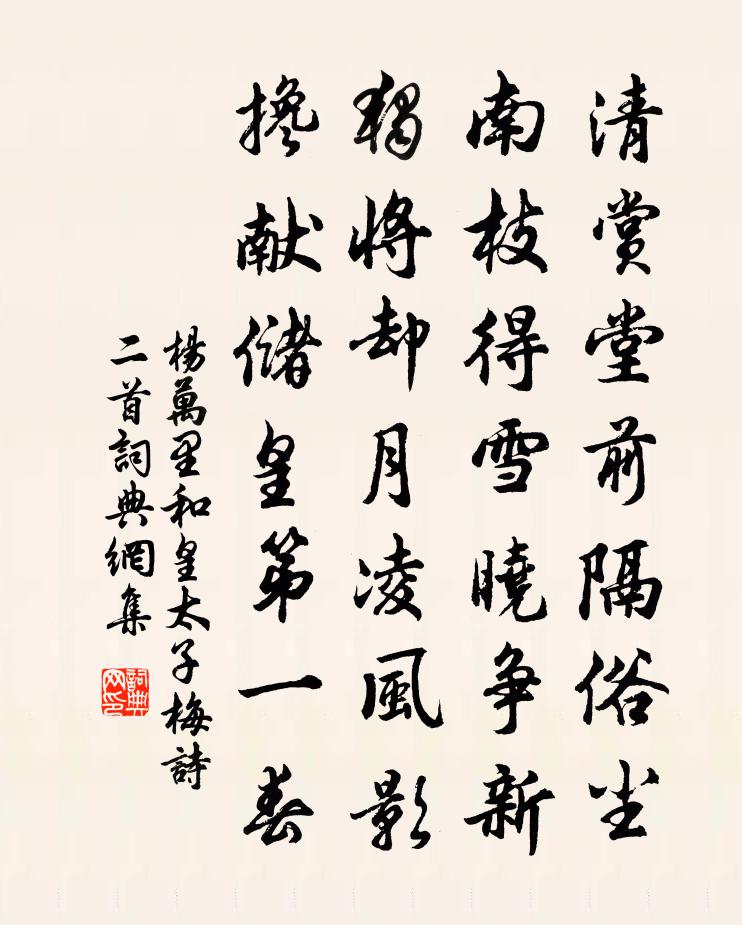 清賞堂前隔俗尘
南枝得雪曉争新
獨將却月凌風影
攙献儲皇第一春
楊萬里和皇太子梅詩
二首詞典網集
詞典网印